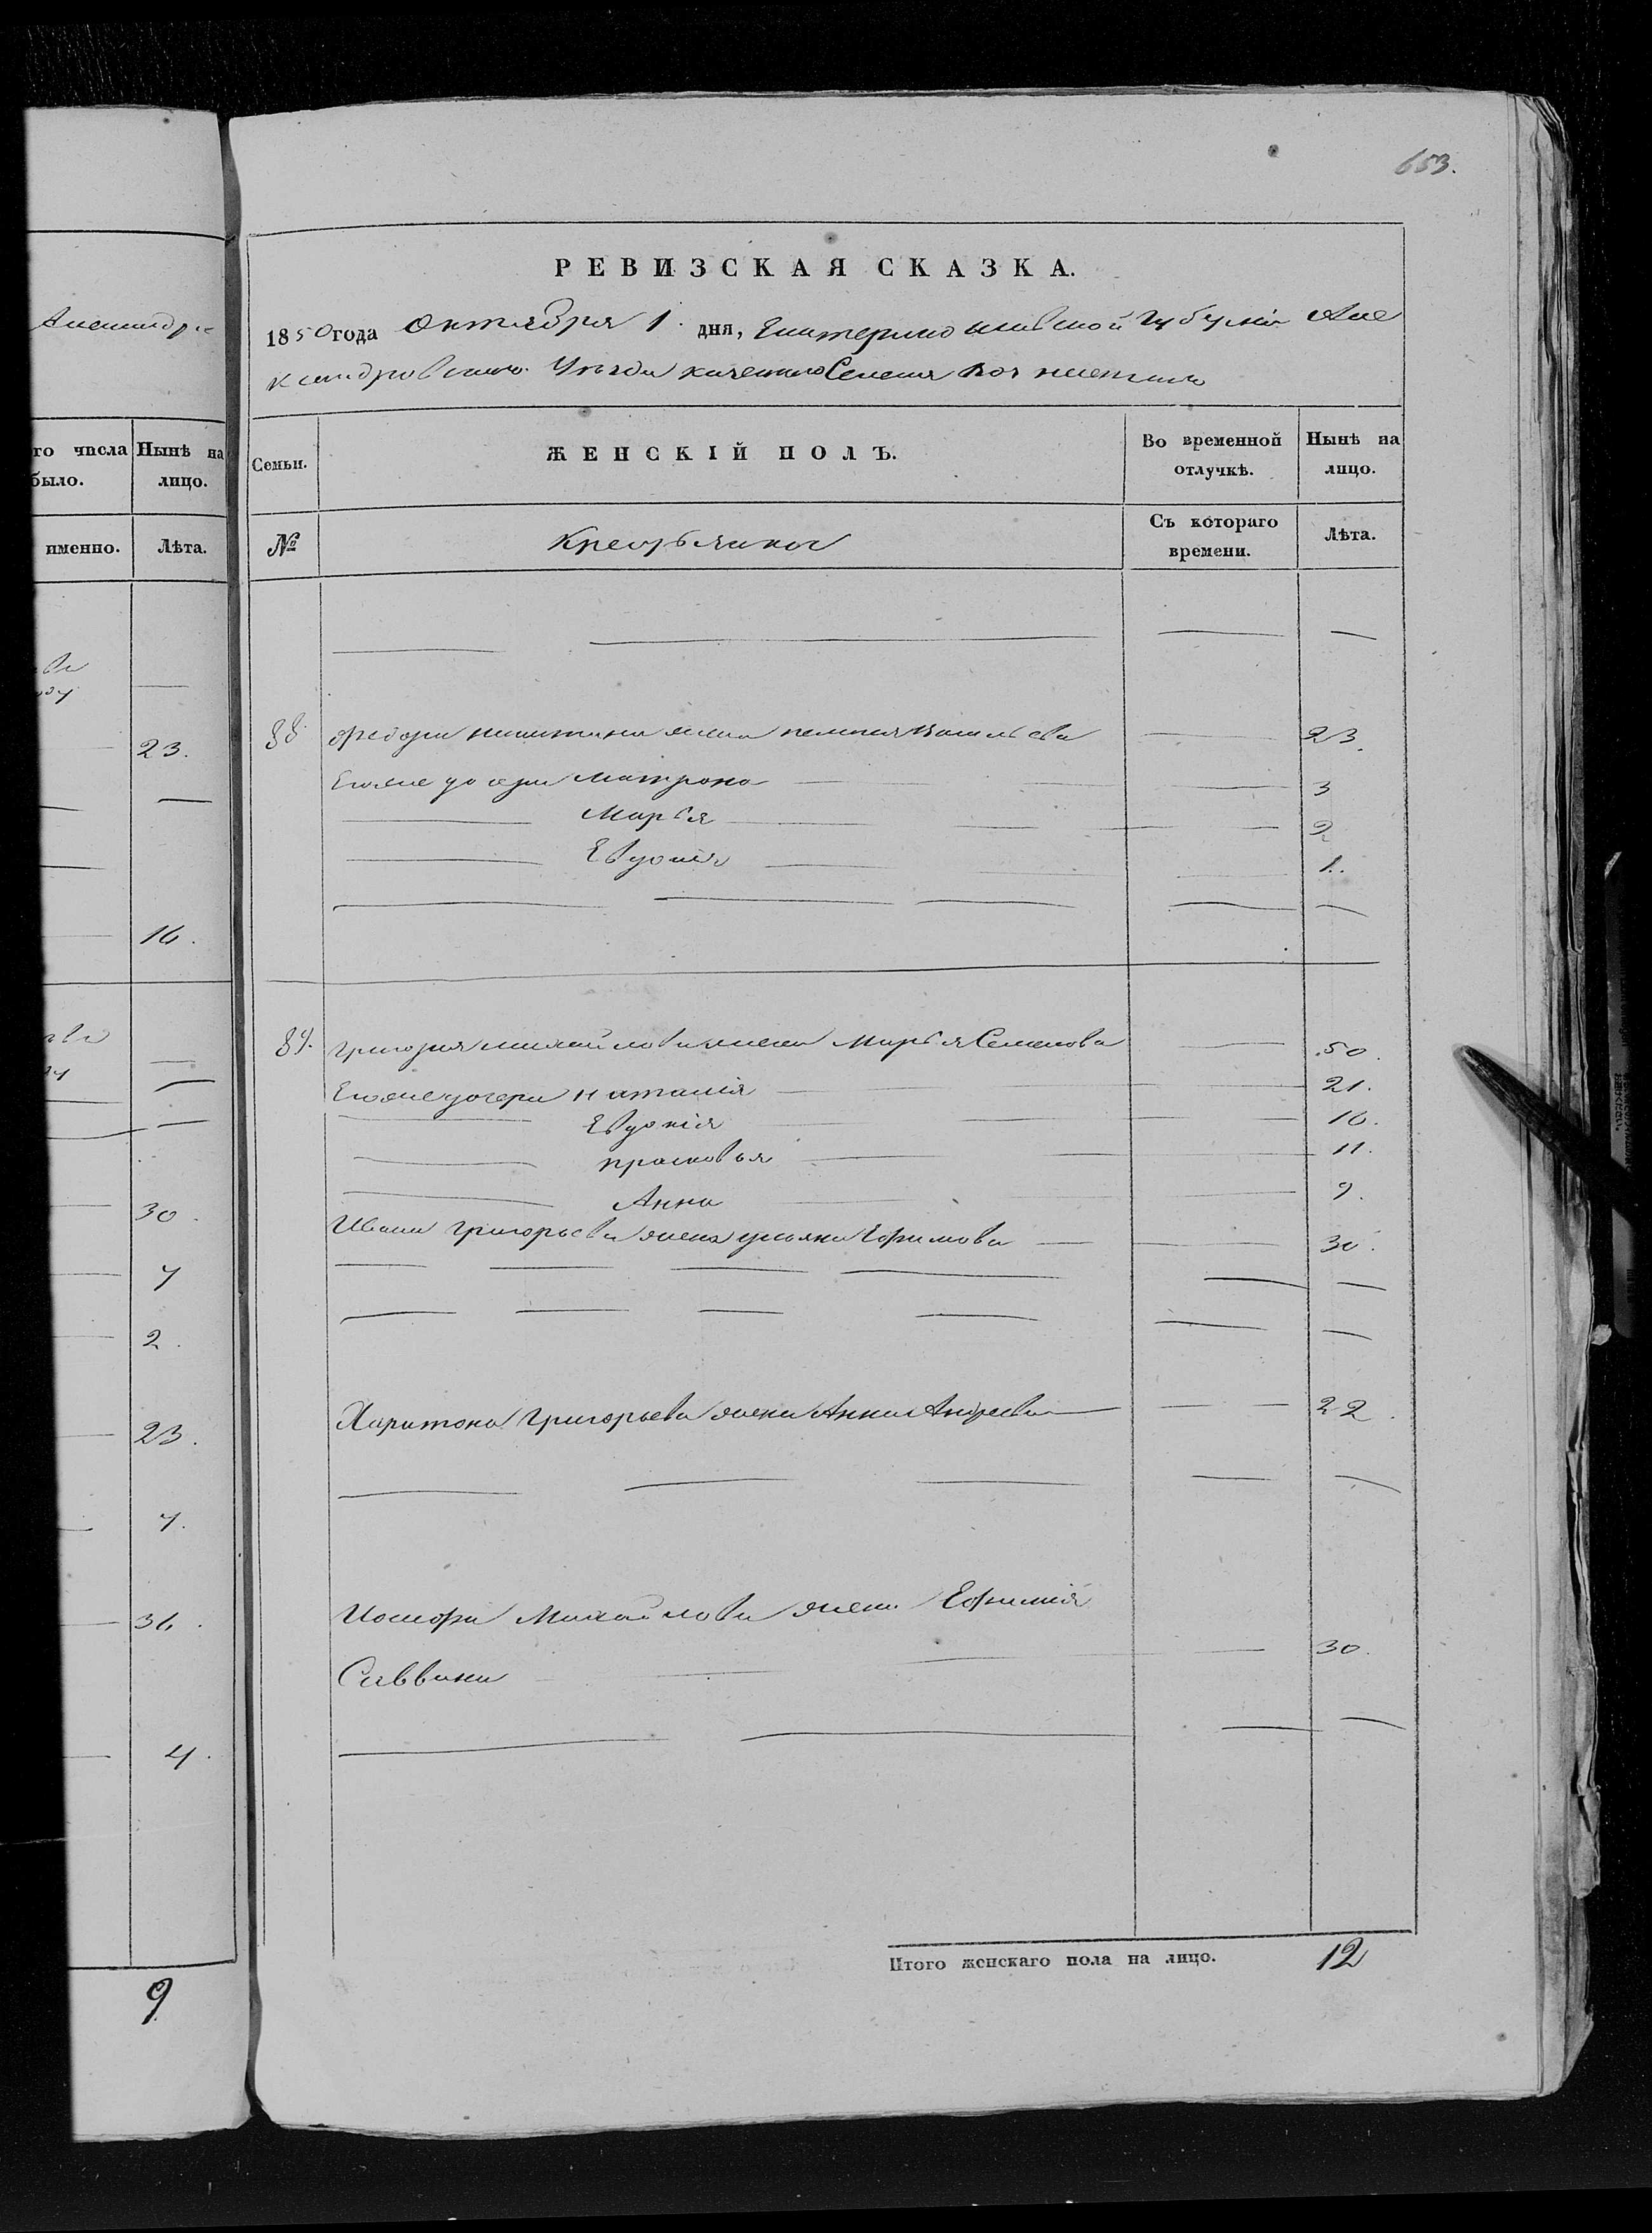 Александро
го числа
было.
Нынѣ на
лицо.
именно.
Лѣта.
ва
23.
16.
30.
7
2.
23.
7.
36.
4.
9
653.
РЕВИЗСКАЯ СКАЗКА.
1850 года Октября 1. дня, Екатеринославской Губерніи Але
ксандровскаго Уѣзда казеннаго Селенія
Семьи.
ЖЕНСКІЙ ПОЛЪ.
Во временной
отлучкѣ.
Нынѣ на
лицо.
№
Крестьянки
Съ котораго
времени.
Лѣта.
88. Федора Никитина жена Васильева 23.
Его же дочери Матрона 3
Марья 2
Евдокія 1.
89. Григорія Михайлова жена Марья Семенова 50.
Его же дочери Наталія 21.
Евдокія 16.
Прасковья 11.
Анна 9.
Ивана Григорьева жена Ульяна Ефимова 30.
Харитона Григорьева жена Анна Андреева 22.
Иосифа Михайлова жена Ефимія
Саввина 30.
Итого женскаго пола на лицо. 12